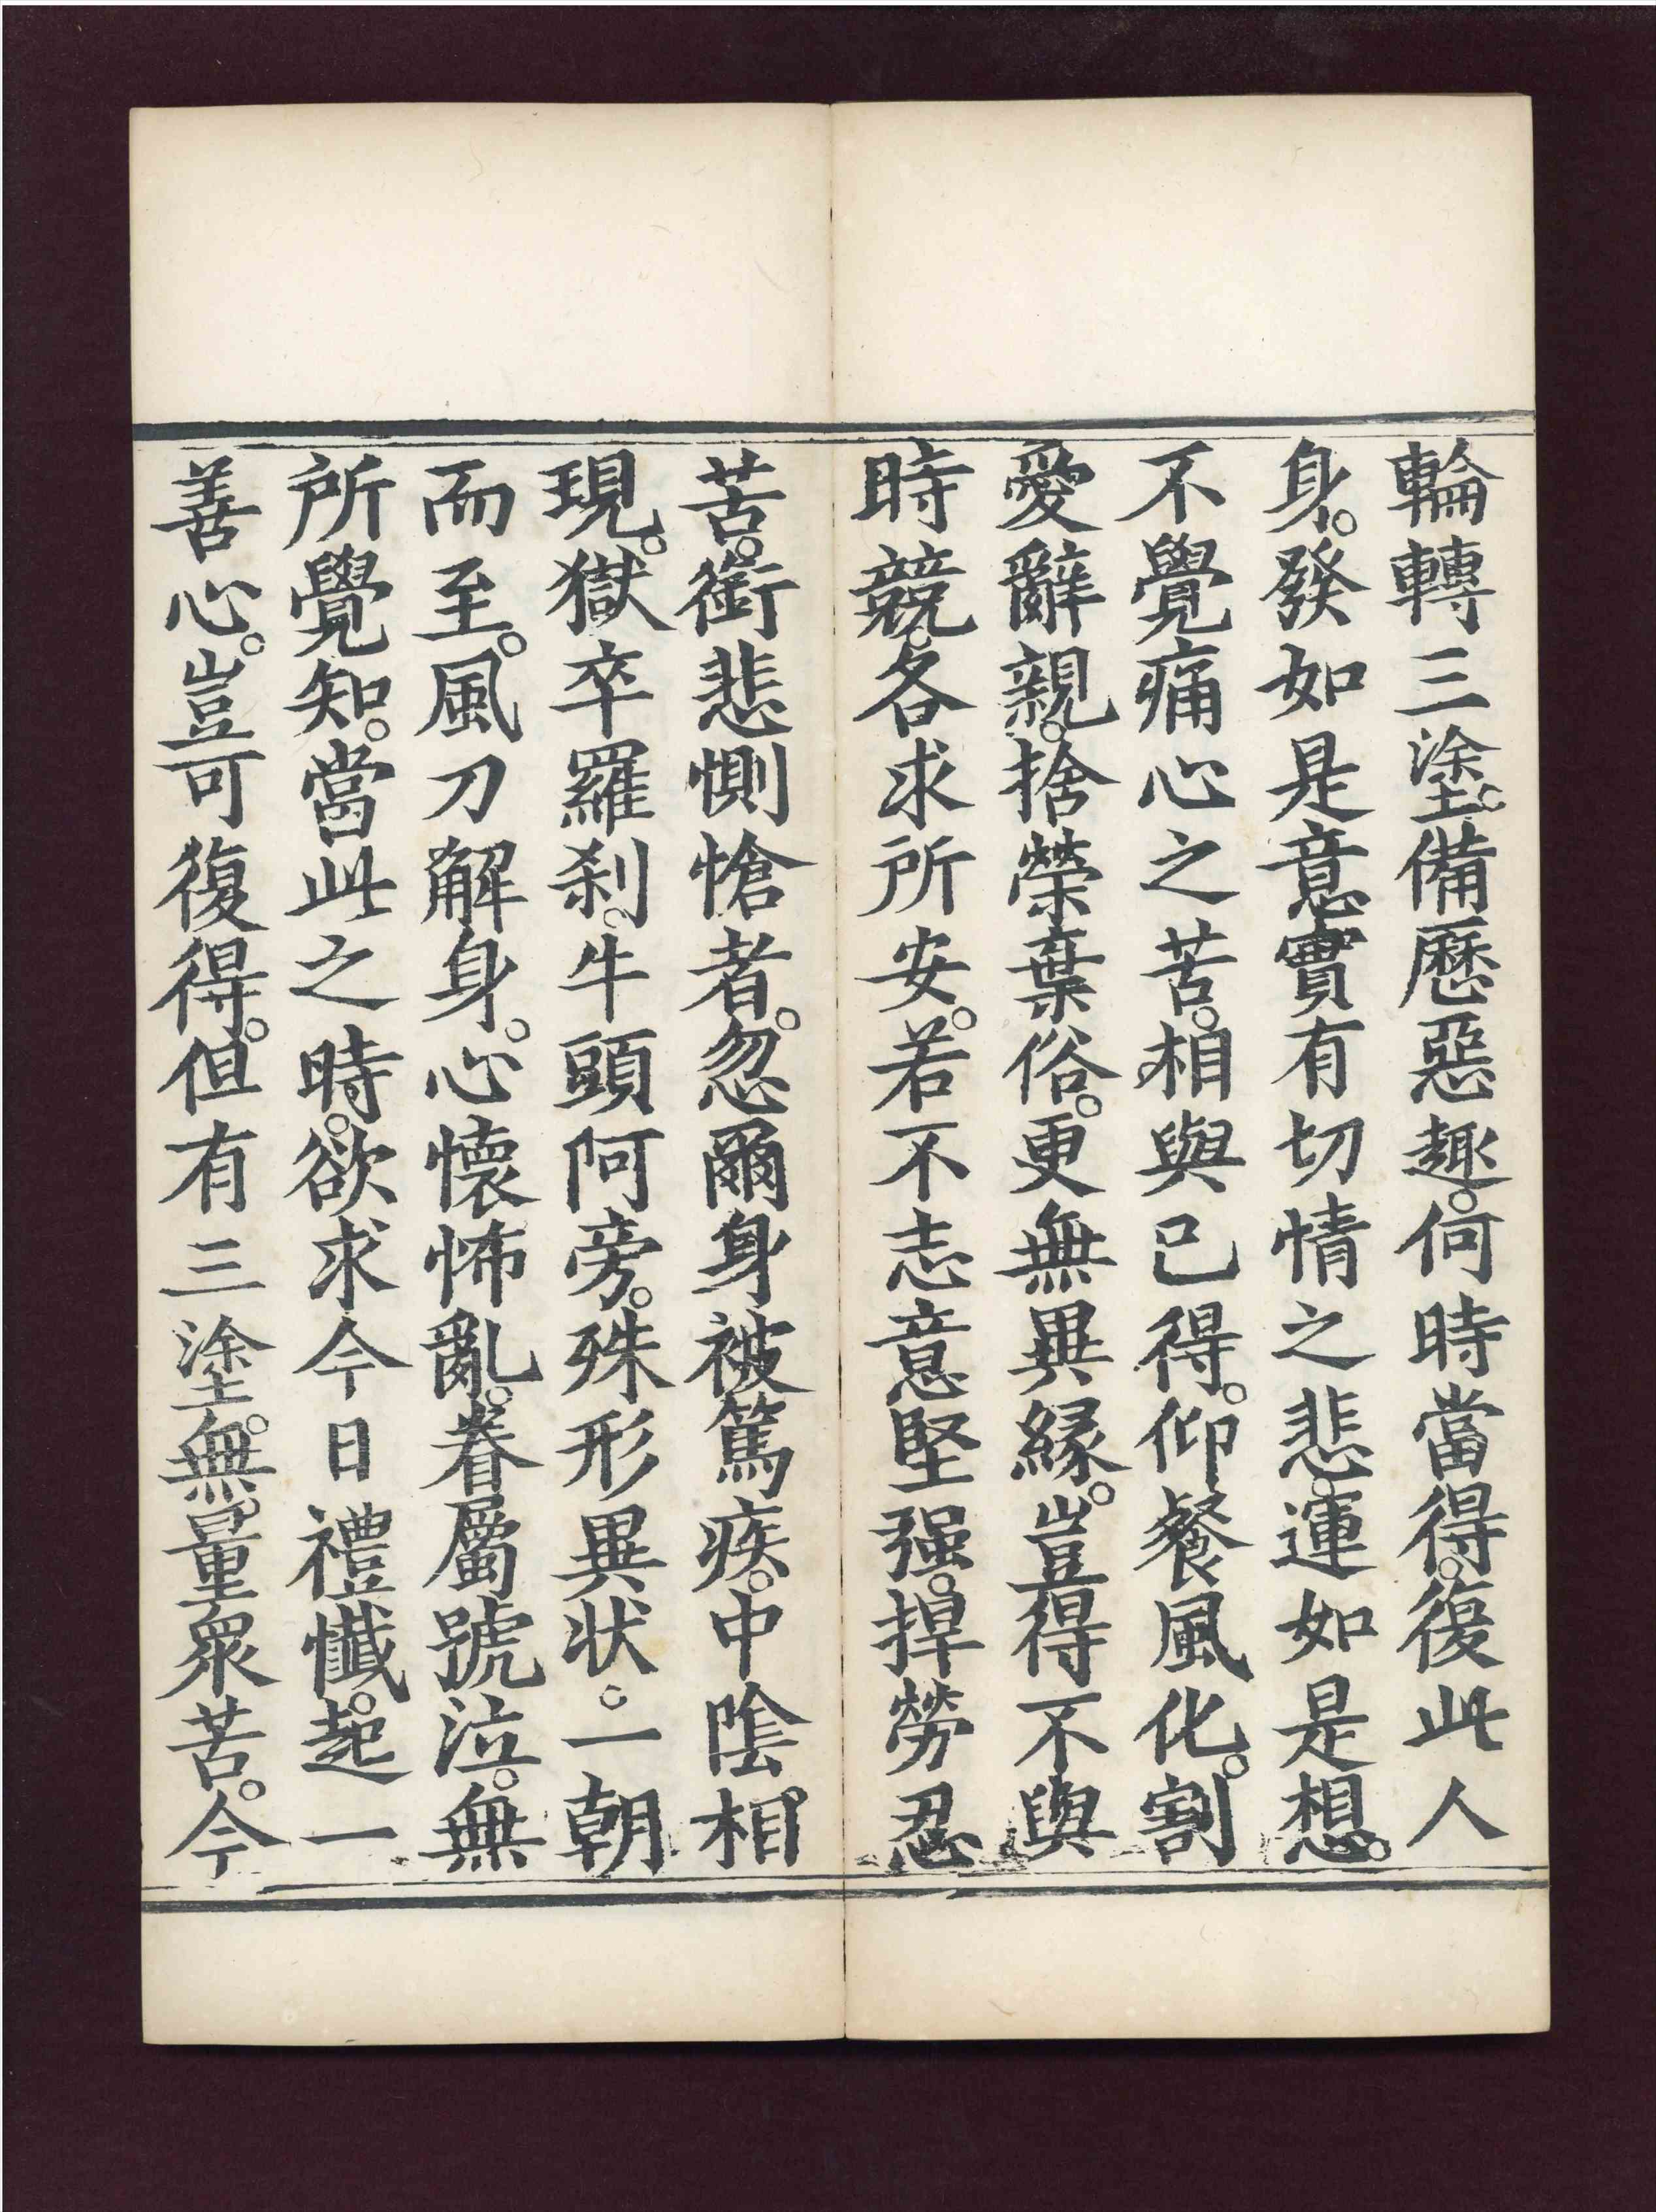 輪轉三塗。備歷惡趣。何時當得。復此人
身。發如是意實有切情之悲。運如是想。
不覺痛心之苦。相與已得。仰餐風化。割
愛辭親。捨榮棄俗。更無異緣。豈得不與
時競。各求所安。若不志意堅强。捍勞忍
苦。銜悲惻愴者。忽爾身被篤疾。中陰。相
現。獄卒羅刹。牛頭阿旁。殊形異狀。一朝
而至。風刀解身。心懷怖亂。眷屬號泣。無
所覺知。當此之時。欲求今日禮懺。起一
善心。豈可復得。但有三塗。無量眾苦。今